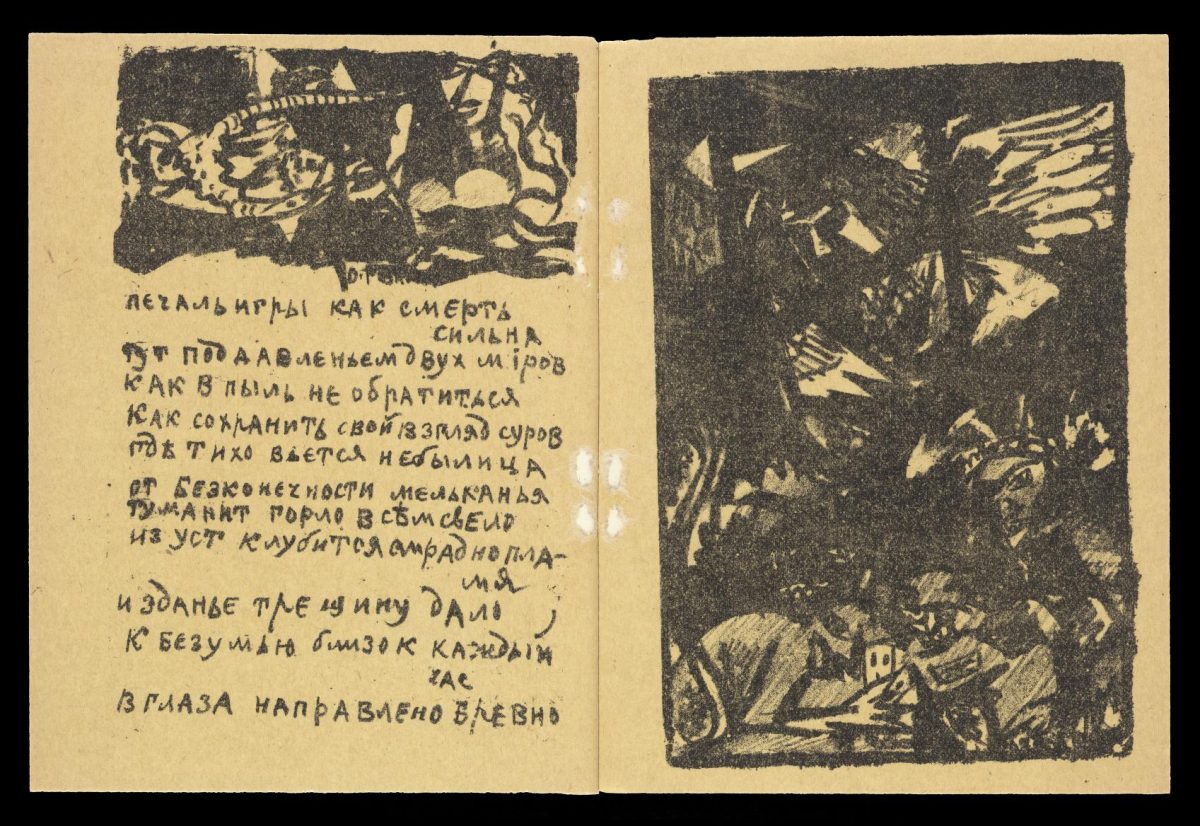 печаль игры как смерть
сильна
тут под давленьем двух мiров
как в пыль не обратиться
как сохранить свой взгляд суров
гдѣ тихо вьется небылица
от безконечности мельканья
туманит горло всѣм свело
из уст клубится смрадно пла-
мя
и зданье трещину дало,
к безумью близок каждый
час
в глаза направлено бревно